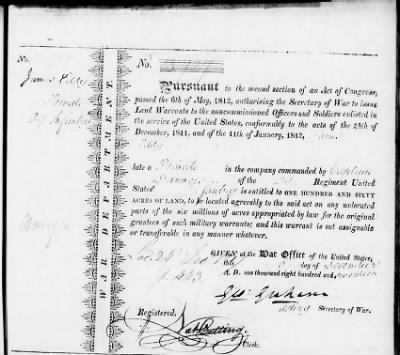 No.
James Eddy
Private
Infantry
WAR DEPARTMENT.
No.
Pursuant to the second section of an Act of Congress,
passed the 6th of May, 1812, authorising the Secretary of War to issue
Land Warrants to the noncommissioned Officers and Soldiers enlisted in
the service of the United States, conformably to the acts of the 24th of
December, 1811, and of the 11th of January, 1812, James
Eddy
late a Private in the company commanded by Captain
of the Regiment United
States' Infantry is entitled to ONE HUNDRED AND SIXTY
ACRES OF LAND, to be located agreeably to the said act on any unlocated
parts of the six millions of acres appropriated by law for the original
grantees of such military warrants; and this warrant is not assignable
or transferable in any manner whatever.
GIVEN at the War Office of the United States,
this day of December
A. D. one thousand eight hundred and seventeen
Geo: Graham
Acting Secretary of War.
Registered,
Cutting
Clerk.